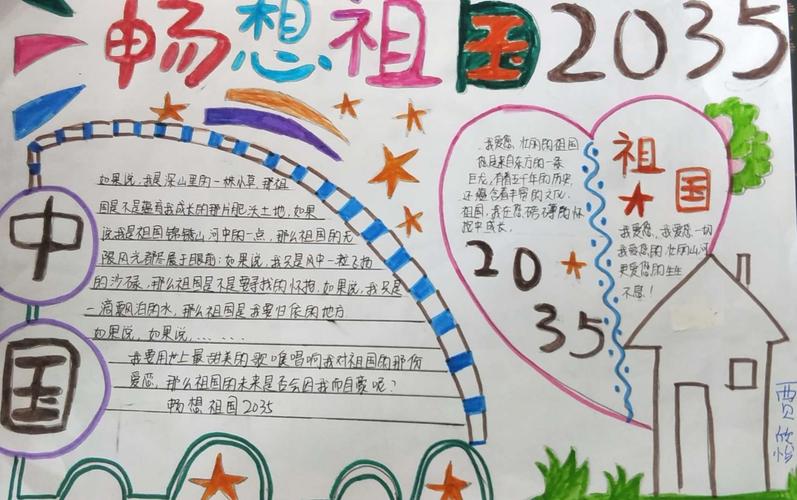 畅想祖国2035
中
国
如果说,我是深山里的一株小草,那祖
国是不是蕴育我成长的那片肥沃土地,如果
说我是祖国锦锈山河中的一点,那么祖国的无
限风光都尽属于眼前;如果说,我只是风中一粒飞扬
的沙碌,那么祖国是不是要寻找的怀抱,如果说,我只是
一滴要风泊的水,那么祖国是我要归依的地方
如果说,如果说,......
我要用世上最甜美的歌喉唱响我对祖国的那份
爱恋,那么祖国的未来是否会因我而自豪呢?
畅想祖国2035
我爱您,壮阔的祖国
您是来自东方的一条
巨龙,有着五千年的历史,
还蕴含着丰富的文化,
祖国,我在您磅礴的怀
抱中成长。
20
35
祖
国
我爱您、我爱您一切
我爱您的壮阔山河
更爱您的生生
不息!
贾欣怡